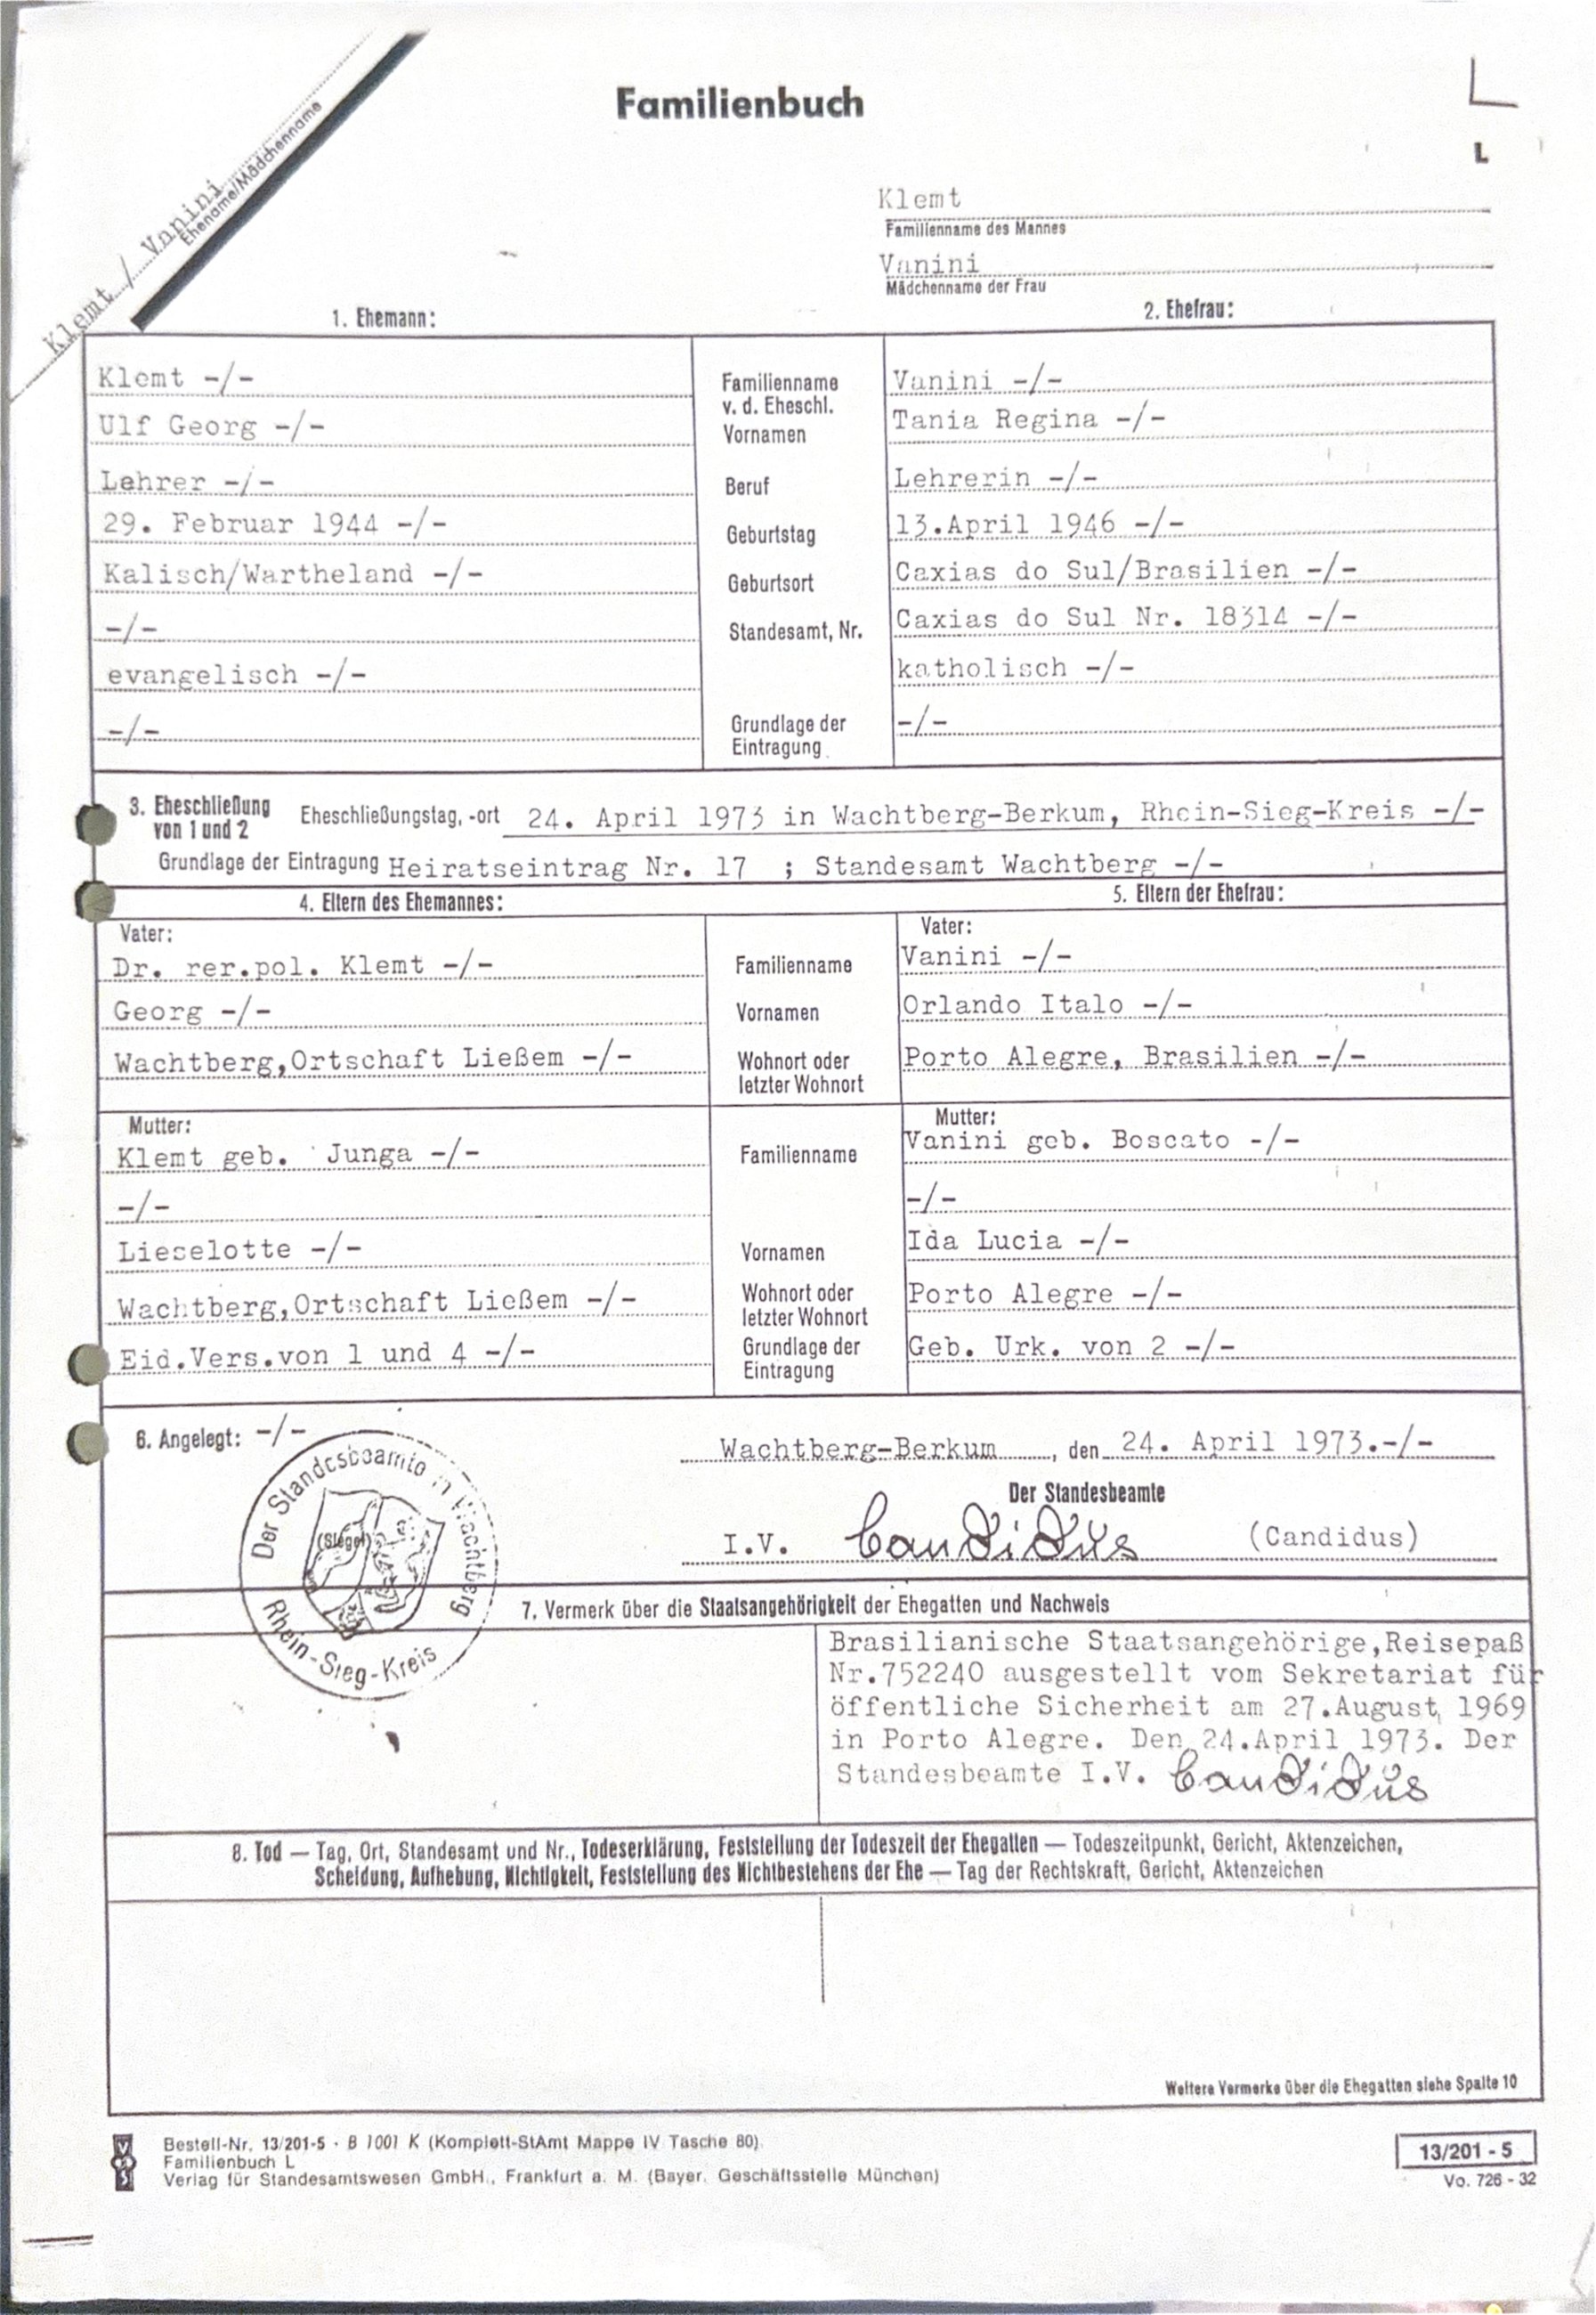 Familienbuch
L
Klemt / Vanini
Ehename/Mädchenname
Klemt
Familienname des Mannes
Vanini
Mädchenname der Frau
1. Ehemann:
2. Ehefrau:
Klemt -/- Familienname v. d. Eheschl. Vanini -/-
Ulf Georg -/- Vornamen Tania Regina -/-
Lehrer -/- Beruf Lehrerin -/-
29. Februar 1944 -/- Geburtstag 13.April 1946 -/-
Kalisch/Wartheland -/- Geburtsort Caxias do Sul/Brasilien -/-
-/- Standesamt, Nr. Caxias do Sul Nr. 18314 -/-
evangelisch -/- katholisch -/-
-/- Grundlage der Eintragung -/-
3. Eheschließung von 1 und 2 Eheschließungstag, -ort 24. April 1973 in Wachtberg-Berkum, Rhein-Sieg-Kreis -/-
Grundlage der Eintragung Heiratseintrag Nr. 17 ; Standesamt Wachtberg -/-
4. Eltern des Ehemannes:
5. Eltern der Ehefrau:
Vater: Vater:
Dr. rer.pol. Klemt -/- Familienname Vanini -/-
Georg -/- Vornamen Orlando Italo -/-
Wachtberg,Ortschaft Ließem -/- Wohnort oder letzter Wohnort Porto Alegre, Brasilien -/-
Mutter: Mutter:
Klemt geb. Junga -/- Familienname Vanini geb. Boscato -/-
-/- -/-
Lieselotte -/- Vornamen Ida Lucia -/-
Wachtberg,Ortschaft Ließem -/- Wohnort oder letzter Wohnort Porto Alegre -/-
Eid.Vers.von 1 und 4 -/- Grundlage der Eintragung Geb. Urk. von 2 -/-
6. Angelegt: -/-
Wachtberg-Berkum, den 24. April 1973.-/-
Der Standesbeamte
I.V. Candidus (Candidus)
Der Standesbeamte in Wachtberg
(Siegel)
Rhein-Sieg-Kreis
7. Vermerk über die Staatsangehörigkeit der Ehegatten und Nachweis
Brasilianische Staatsangehörige,Reisepaß
Nr.752240 ausgestellt vom Sekretariat für
öffentliche Sicherheit am 27.August 1969
in Porto Alegre. Den 24.April 1973. Der
Standesbeamte I.V. Candidus
8. Tod — Tag, Ort, Standesamt und Nr., Todeserklärung, Feststellung der Todeszeit der Ehegatten — Todeszeitpunkt, Gericht, Aktenzeichen,
Scheidung, Aufhebung, Nichtigkeit, Feststellung des Nichtbestehens der Ehe — Tag der Rechtskraft, Gericht, Aktenzeichen
Weitere Vermerke über die Ehegatten siehe Spalte 10
Bestell-Nr. 13/201-5 · B 1001 K (Komplett-StAmt Mappe IV Tasche 80)
Familienbuch L
Verlag für Standesamtswesen GmbH., Frankfurt a. M. (Bayer. Geschäftsstelle München)
13/201 - 5
Vo. 726 - 32